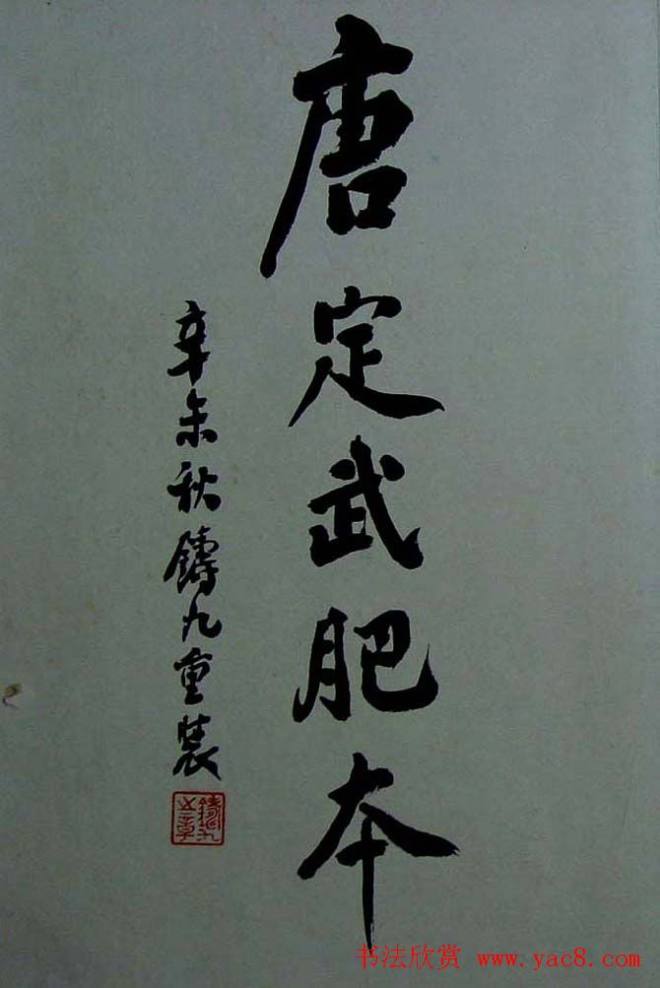 唐定武肥本
辛未秋鑄九重裝
鑄九之章
书法欣赏 www.yac8.com